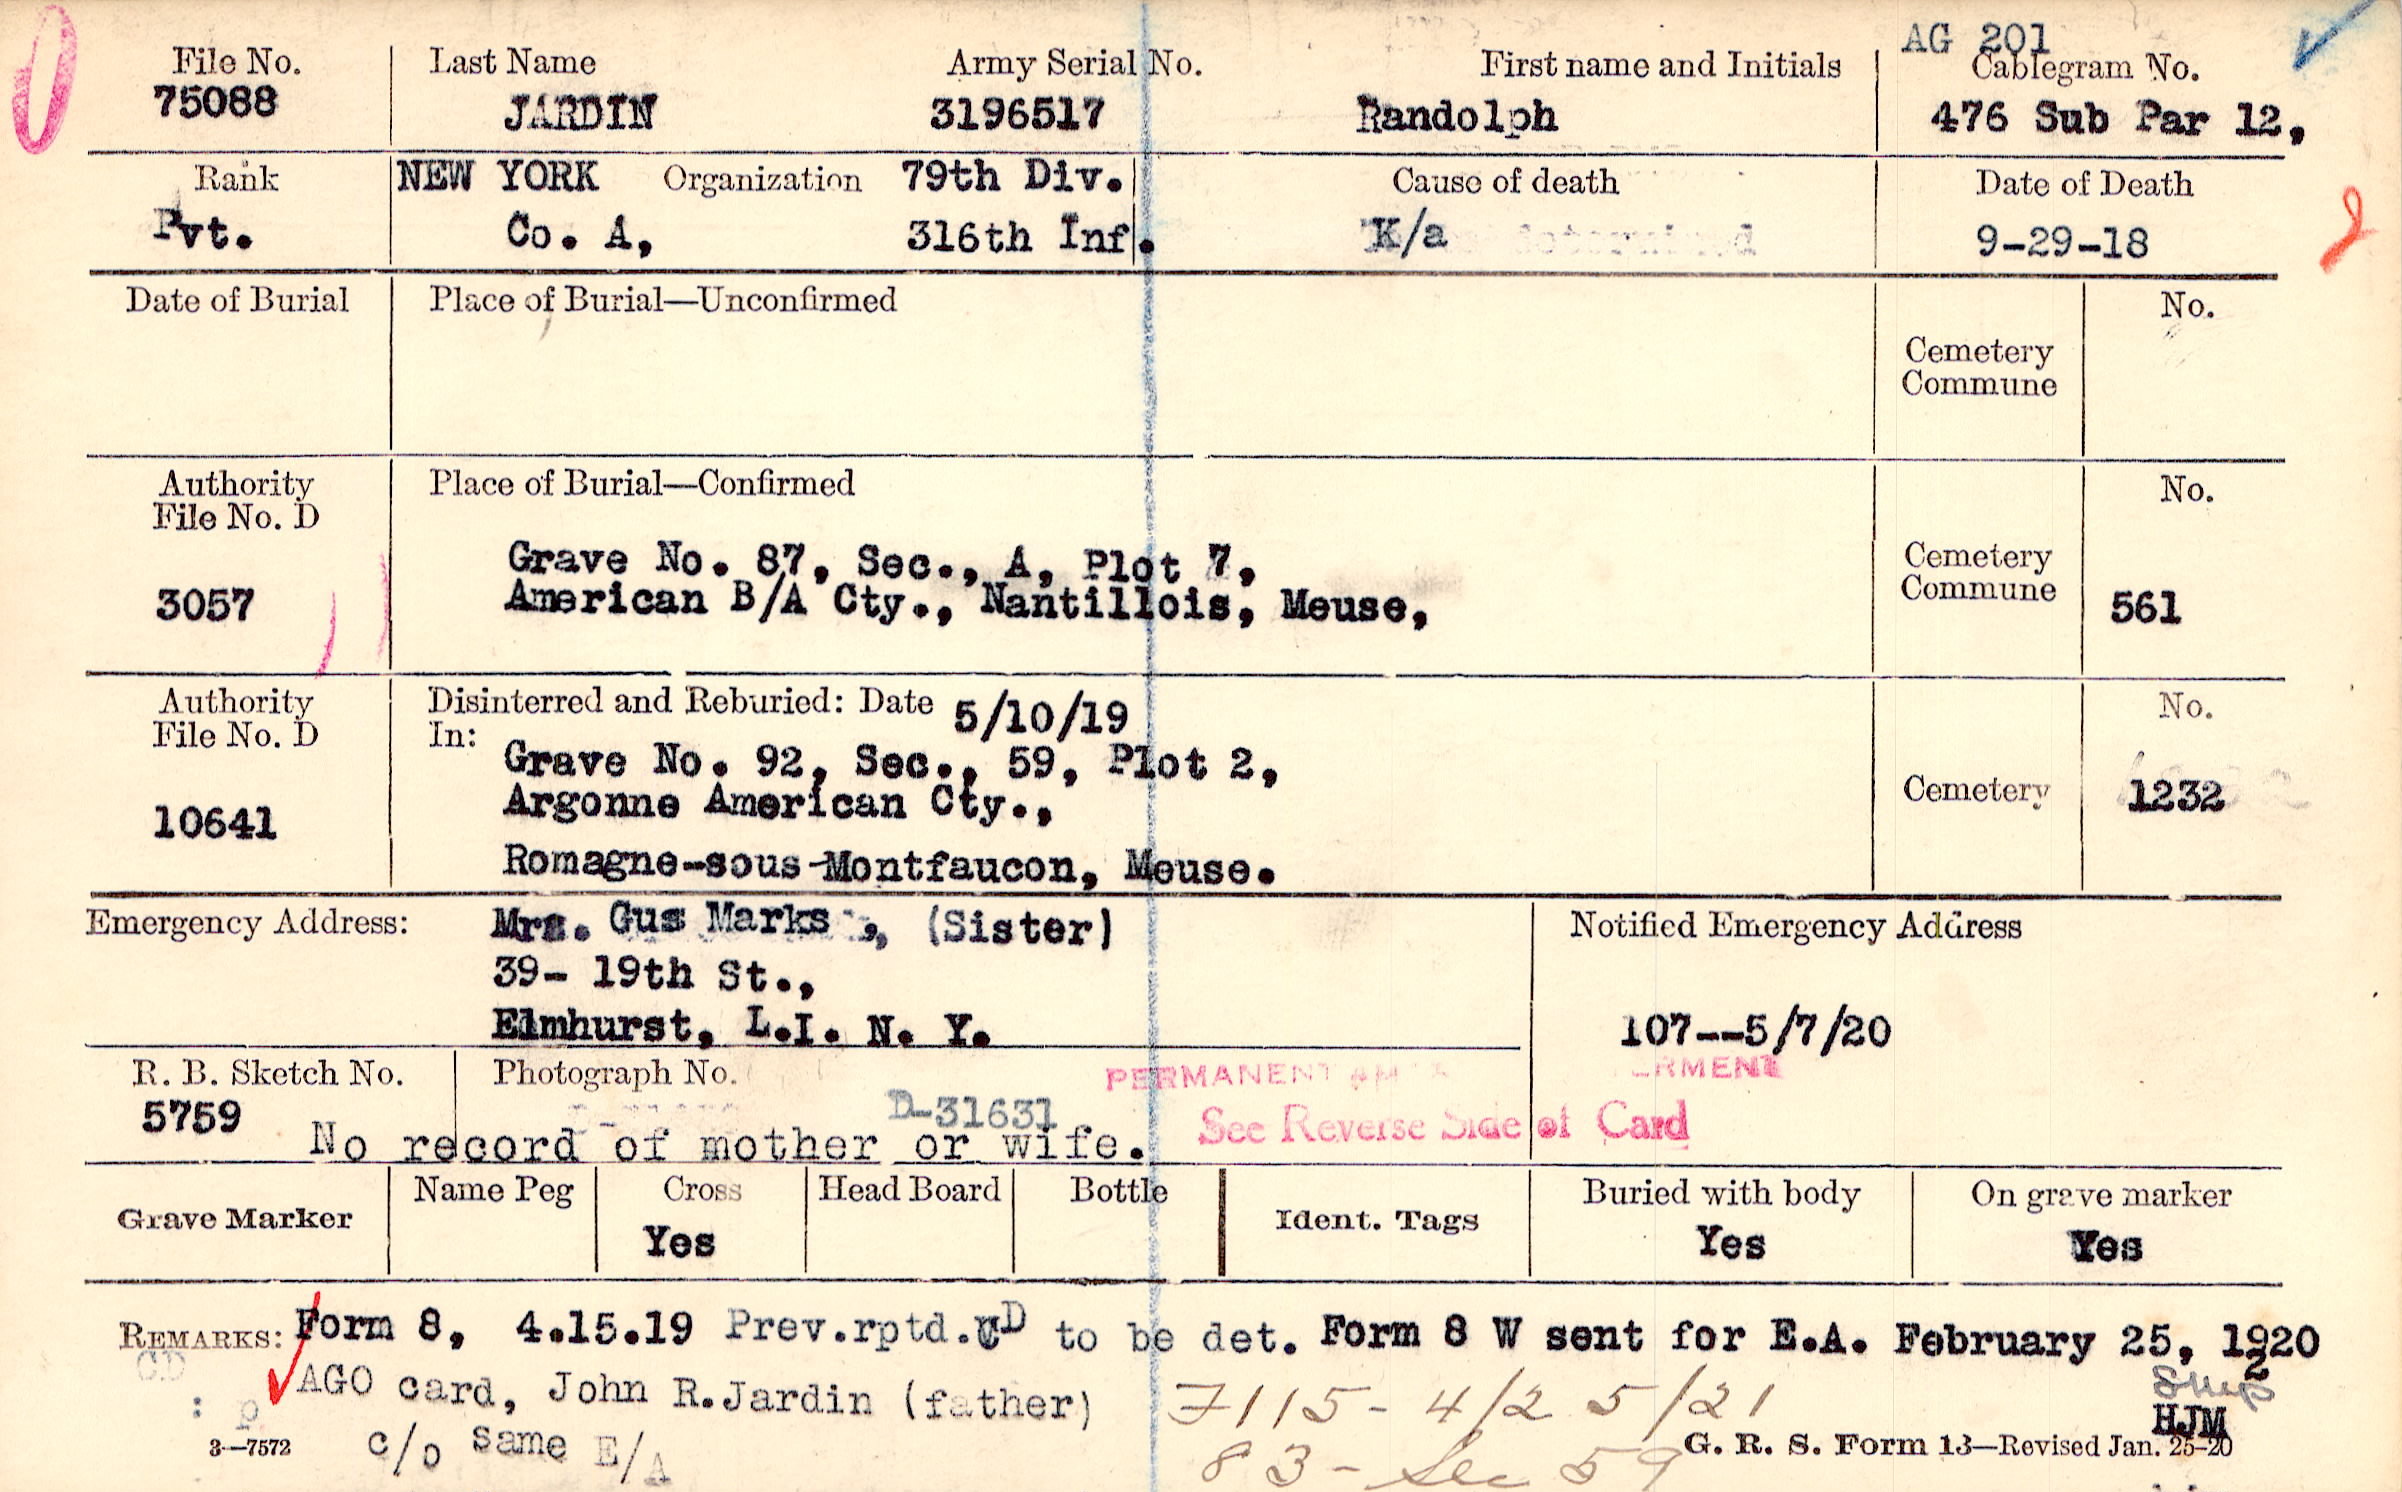 AG 201
File No. Last Name Army Serial No. First name and Initials Cablegram No.
75088 JARDIN 3196517 Randolph 476 Sub Par 12,
Rank NEW YORK Organization 79th Div. Cause of death Date of Death
Pvt. Co. A, 316th Inf. K/a 9-29-18
Date of Burial Place of Burial—Unconfirmed No.
Cemetery
Commune
Authority Place of Burial—Confirmed No.
File No. D
Grave No. 87, Sec., A, Plot 7, Cemetery
3057 American B/A Cty., Nantillois, Meuse, Commune 561
Authority Disinterred and Reburied: Date 5/10/19 No.
File No. D In:
Grave No. 92, Sec., 59, Plot 2,
10641 Argonne American Cty., Cemetery 1232
Romagne-sous-Montfaucon, Meuse.
Emergency Address: Mrs. Gus Marks, (Sister) Notified Emergency Address
39- 19th St.,
Elmhurst, L.I. N. Y. 107--5/7/20
R. B. Sketch No. Photograph No. PERMANENT
5759 D-31631 See Reverse Side of Card
No record of mother or wife.
Grave Marker Name Peg Cross Head Board Bottle Ident. Tags Buried with body On grave marker
Yes Yes Yes
REMARKS: Form 8, 4.15.19 Prev.rptd. CD to be det. Form 8 W sent for E.A. February 25, 1920
AGO card, John R.Jardin (father) 7115- 4/25/21 2
c/o same E/A 83- Sec 59 HJM
3—7572 G. R. S. Form 13—Revised Jan. 25-20